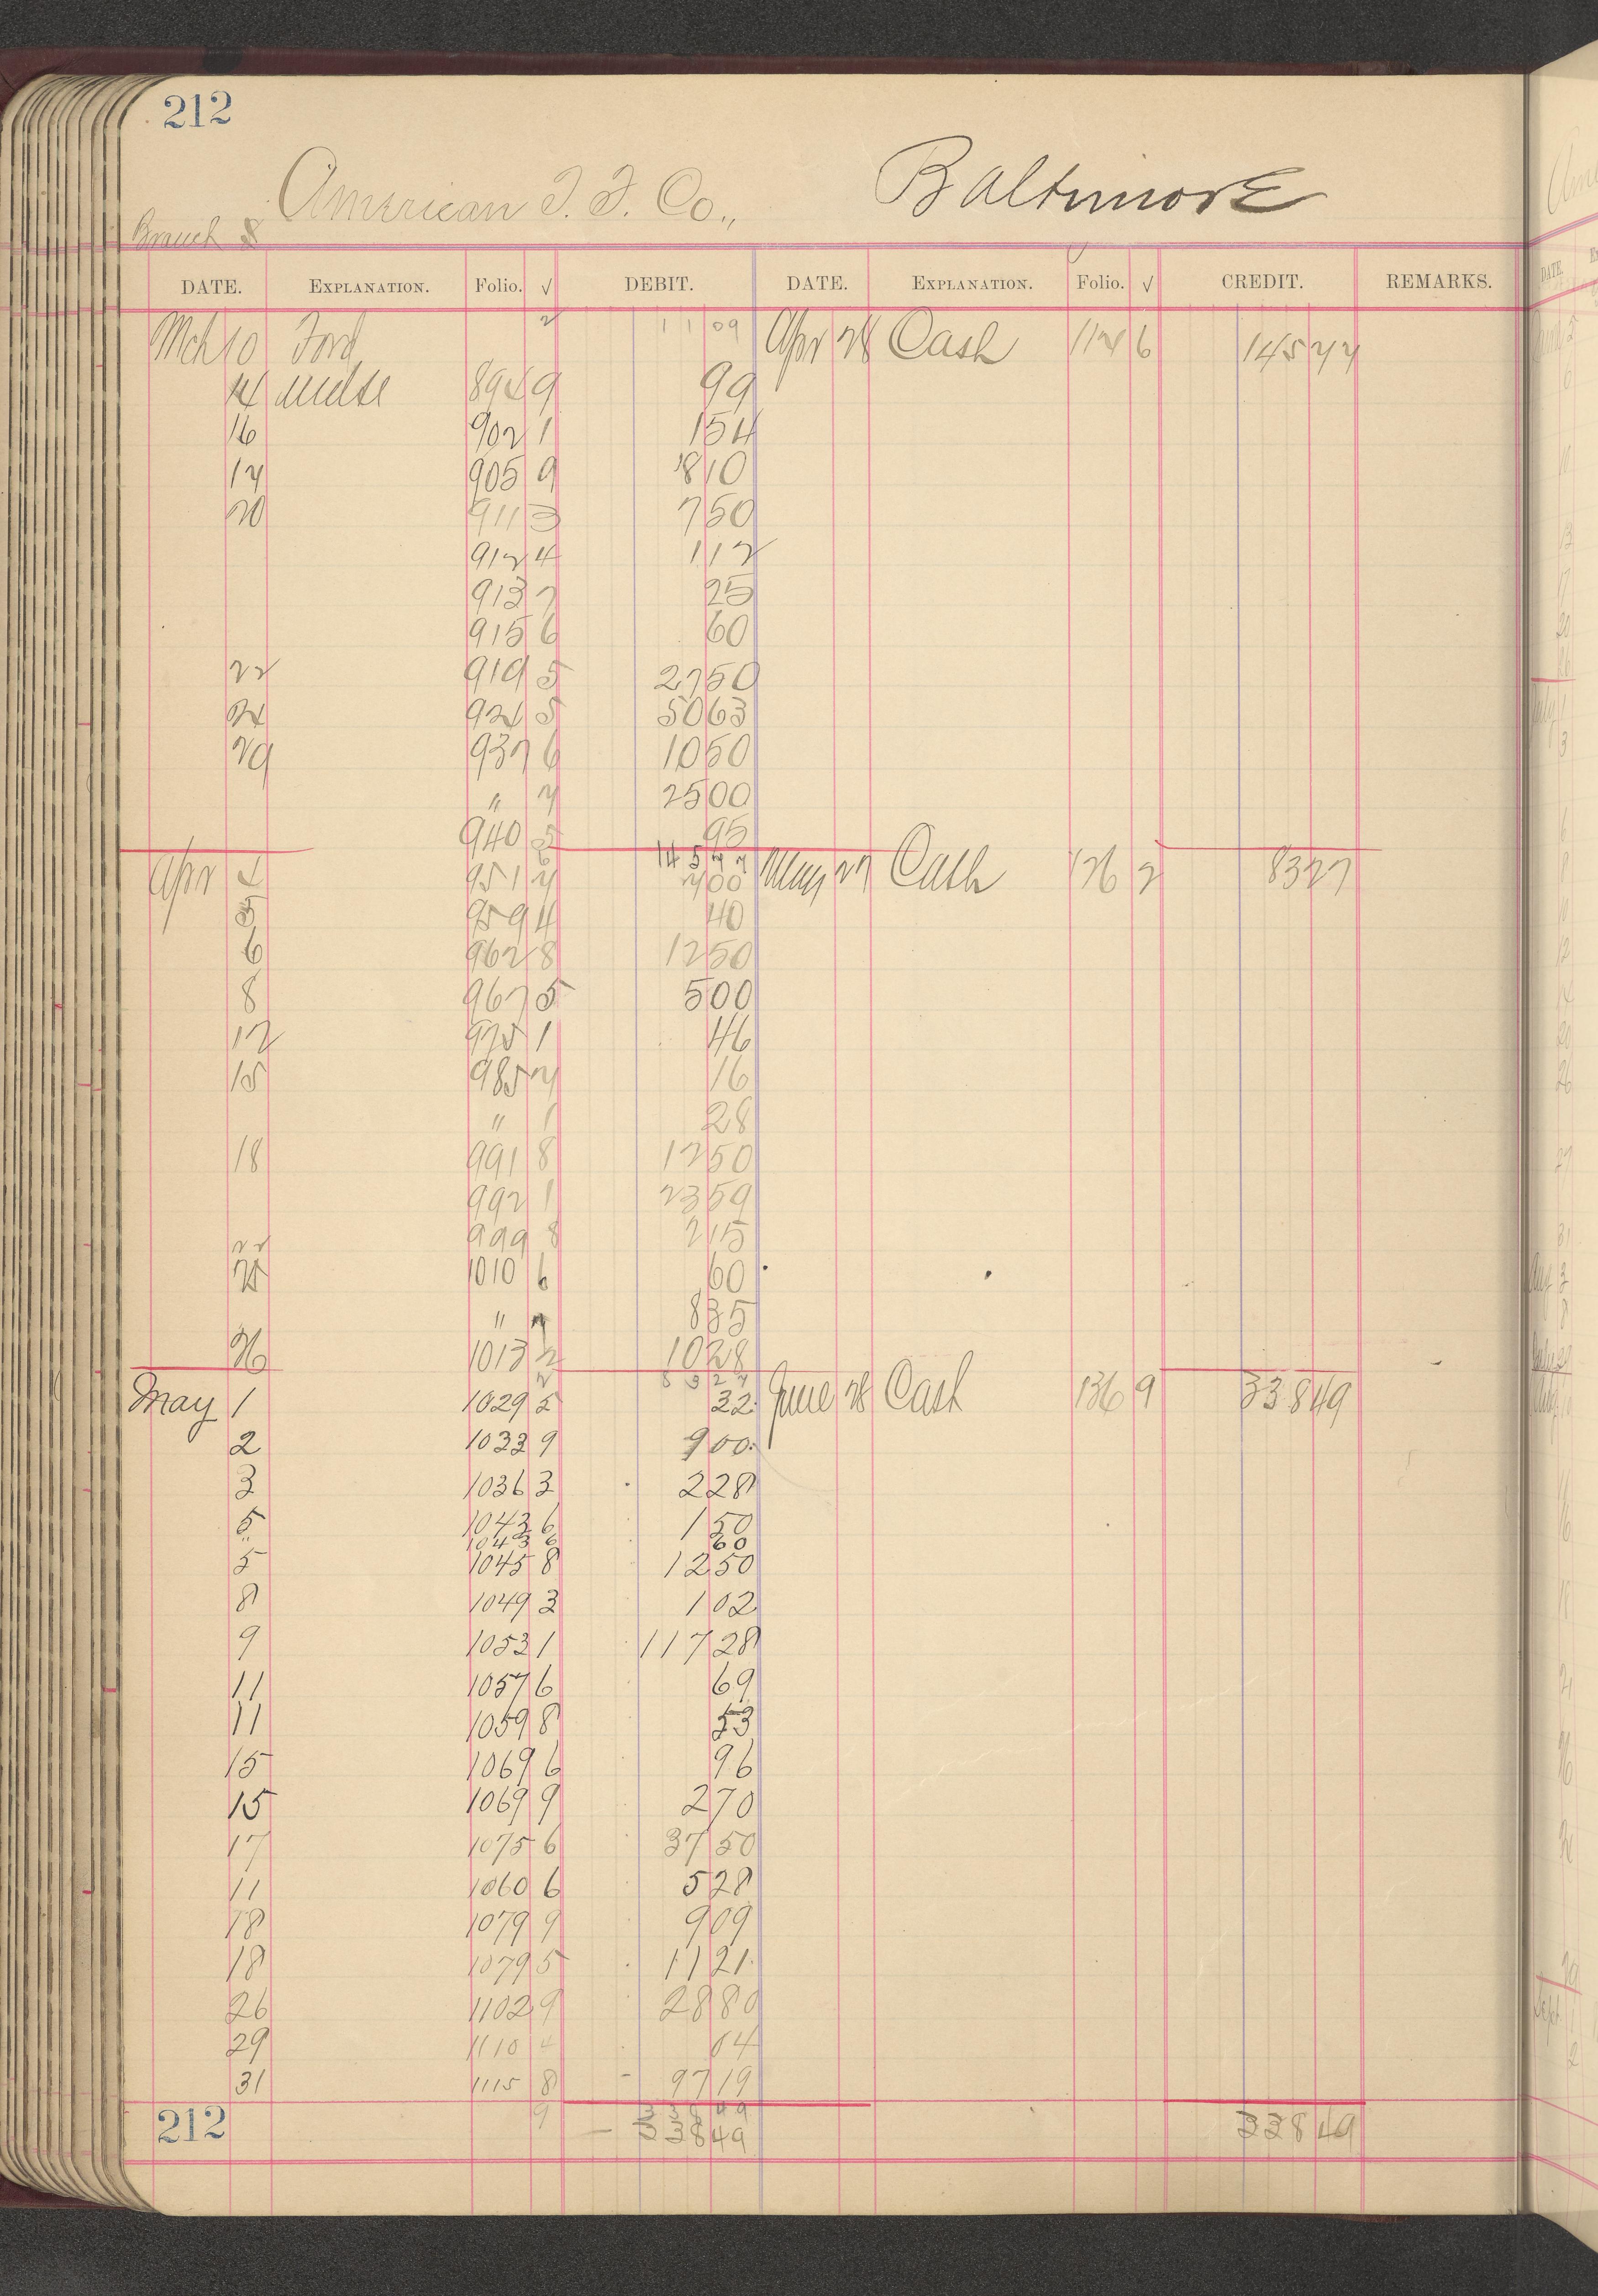 212
American I. F. Co., Baltimore
Branch 8
DATE. EXPLANATION. Folio. √ DEBIT. DATE. EXPLANATION. Folio. √ CREDIT. REMARKS.
Mch 10 Ford 2 11 09 Apr 28 Cash 112 6 145 77
14 Mdse 894 9 99
16 902 1 1 54
17 905 9 8 10
20 911 3 7 50
912 4 1 12
913 7 25
915 6 60
22 919 5 27 50
24 921 5 50 63
29 937 6 10 50
" 7 25 00
940 5 95
145 77
Apr 1 951 7 7 00 May 27 Cash 126 2 83 27
5 959 4 40
6 962 8 12 50
8 967 5 5 00
12 975 1 46
15 985 7 16
" 1 28
18 991 8 12 50
992 1 23 59
22 999 8 2 15
25 1010 6 60
" 7 8 35
26 1013 2 10 28
83 27
May 1 1029 5 22 June 28 Cash 136 9 338 49
2 1033 9 9 00
3 1036 3 2 28
5 1043 6 1 50
" 1043 6 60
5 1045 8 12 50
8 1049 3 1 02
9 1053 1 117 28
11 1057 6 69
11 1059 8 53
15 1069 6 96
15 1069 9 2 70
17 1075 6 37 50
11 1060 6 5 28
18 1079 9 9 09
18 1079 5 11 21
26 1102 9 28 80
29 1110 4 14
31 1115 8 97 19
338 49
212 9 338 49 338 49